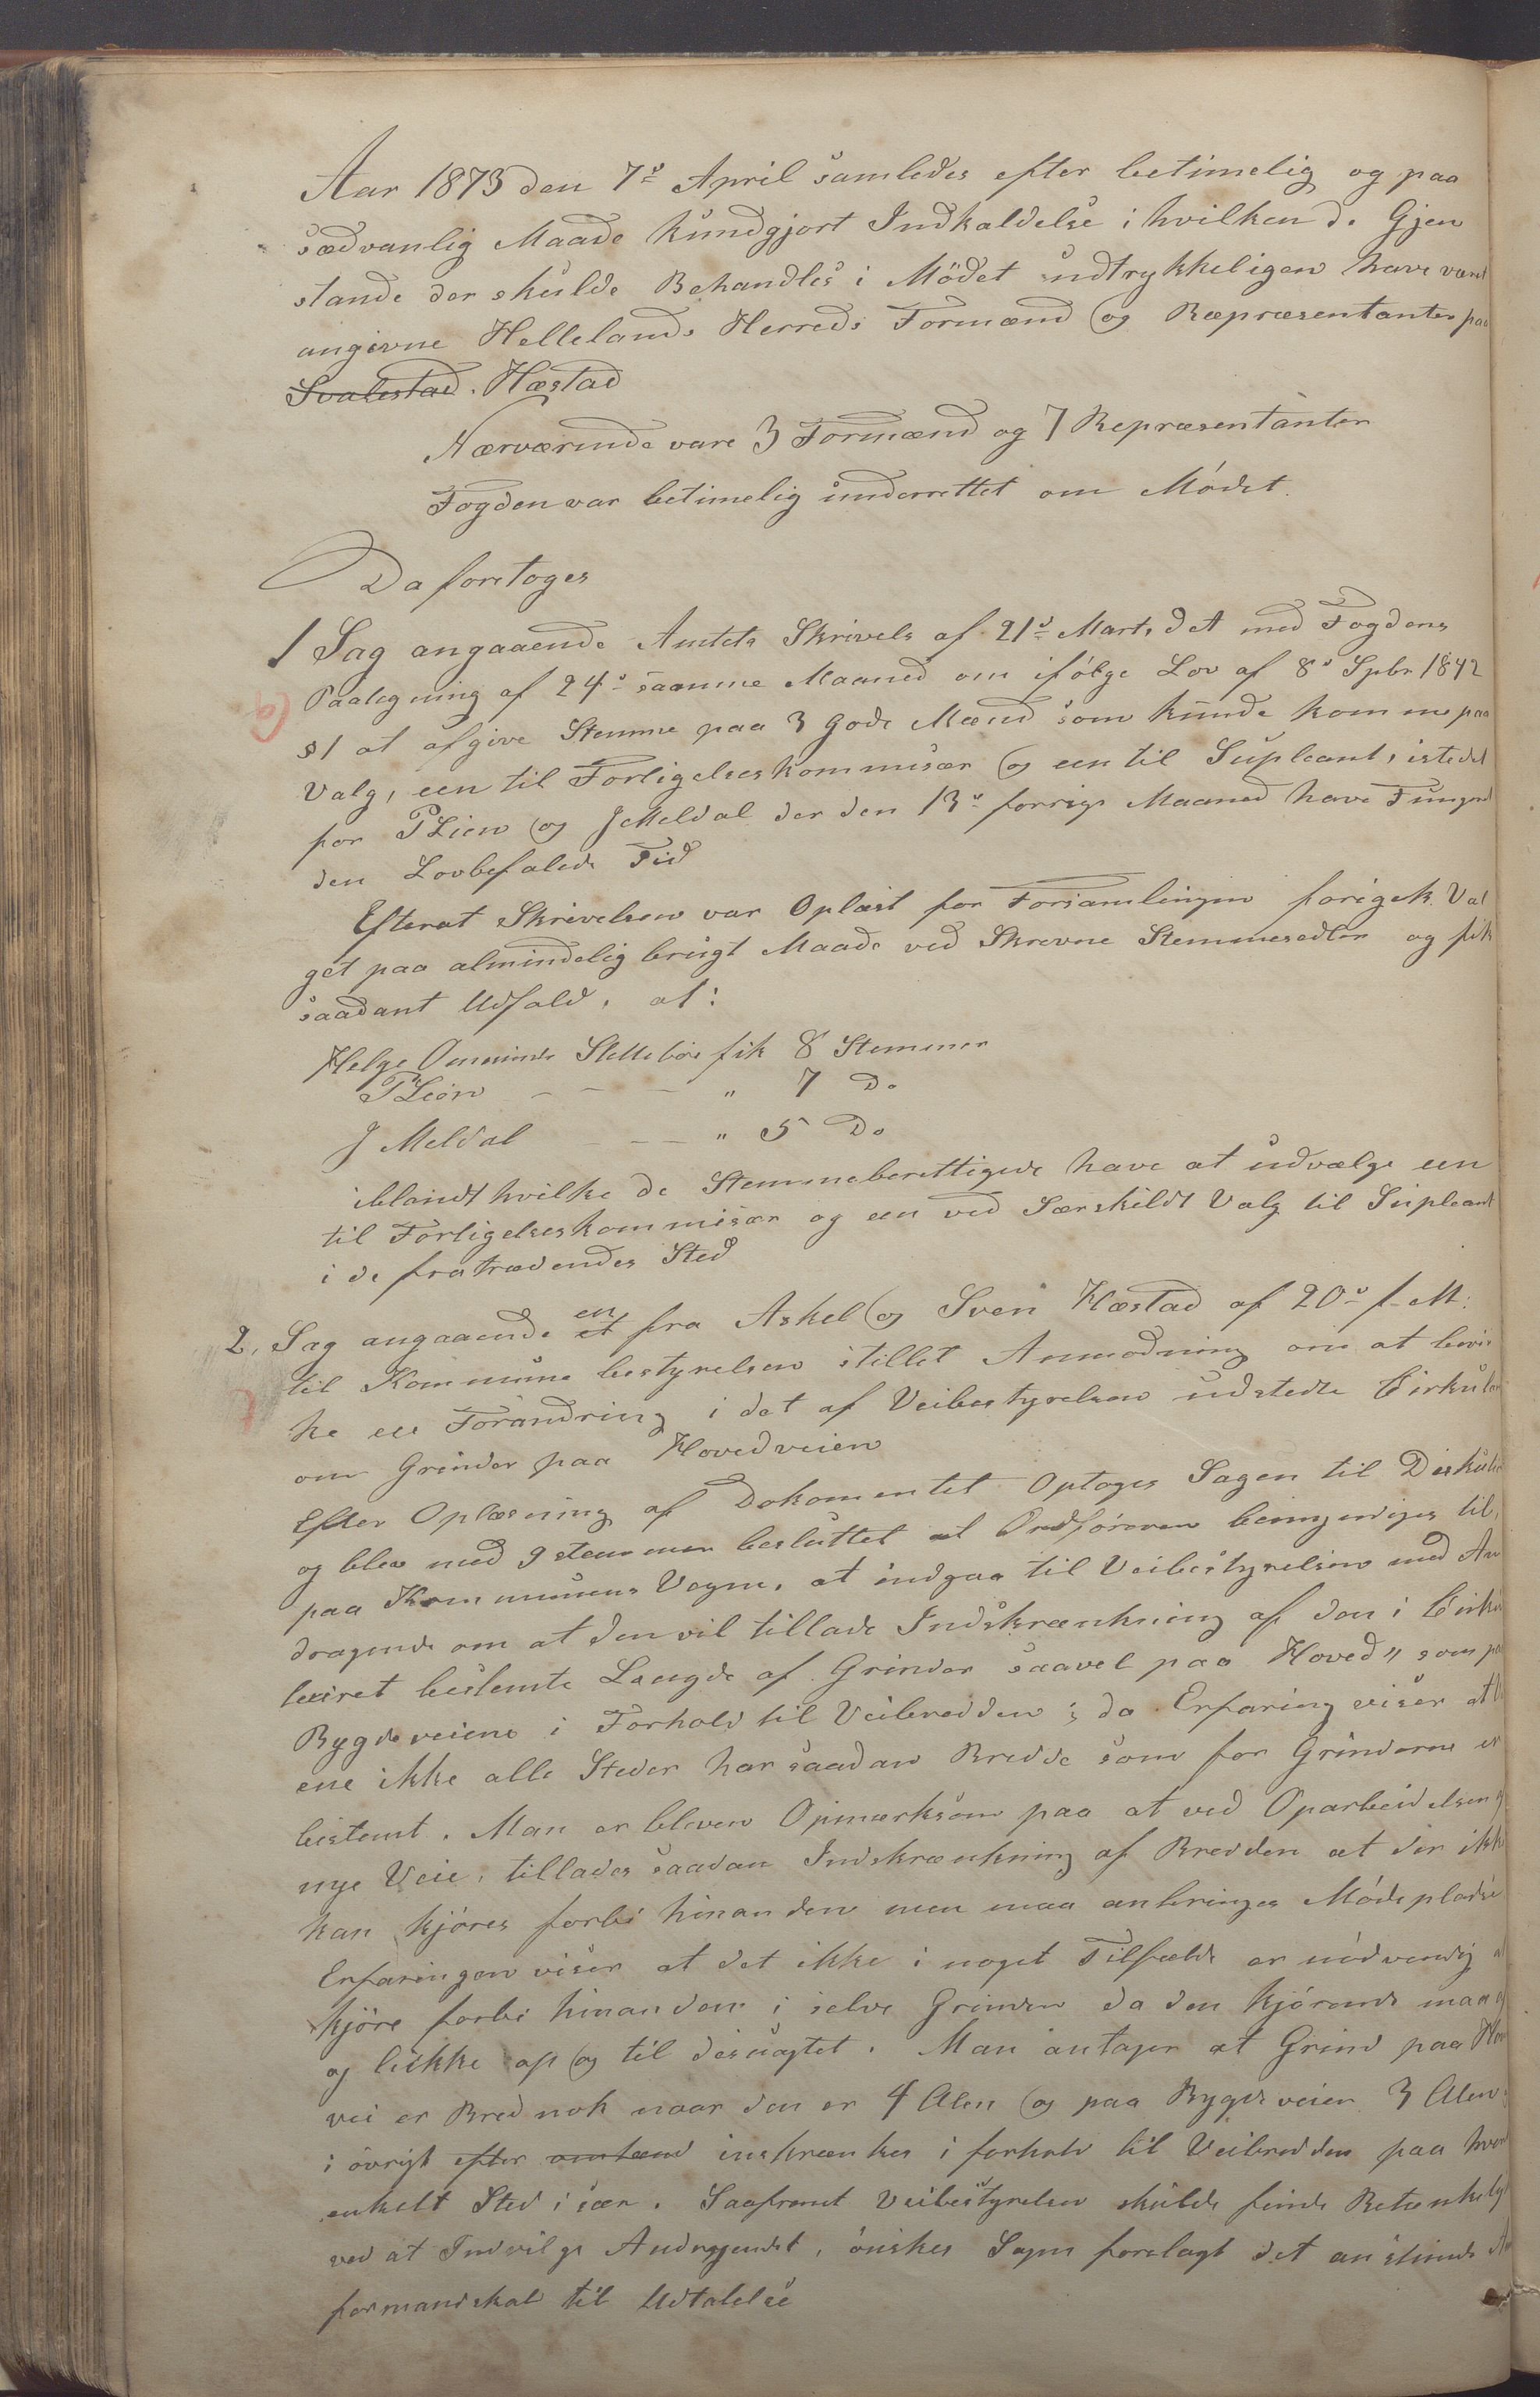 Aar 1873 den 7de April samledes efter betimelig og paa
sædvanlig Maade kundgjort Indkaldelse i hvilken de Gjen
stande der skulde Behandles i Mödet udtrykkeligen have været
angivne Hellelands Herreds Formænd og Repræsentanter paa
Svalestad. Hæstad
Nærværende vare 3 Formænd og 7 Repræsentanter
Fogden var betimelig underrettet om Mödet.
Da foretoges
1 Sag angaaende Amtets Skrivels af 21de Marts d A med Fogdens
Paategning af 24de samme Maaned om ifölge Lov af 8de Spbr 1842
§ 1 at afgive Stemme paa 3 gode Mænd som kunde komme paa
Valg, een til Forligelseskommisær og een til Supleant, istedet
for P Lien og J Meldal der den 13de forrige Maaned have Fungeret
den Lovbefalede Tid
Efterat Skrivelsen var Oplæst for Forsamlingen foregik Val
get paa almindelig brugt Maade ved Skrevne Stemmesedler og fik
saadant Udfald, at:
Helge Ommunds Slettebö fik 8 Stemmer
P Lien - - - " 7 Do
J Meldal - - - " 5 Do
iblandt hvilke de Stemmeberettigede have at udvælge een
til Forligelseskommisær og een ved Særskildt Valg til Supleant
i de fratrædendes Sted
2, Sag angaaende et en fra Askel og Sven Hæstad af 20de f. M:
til Kommunebestyrelsen stillet Anmodning om at bevir
ke en Forandring i det af Veibestyrelsen udstedte Cirkulær
om Grinder paa Hovedveien
Efter Oplæsning af Dokomentet Optoges Sagen til Diskution
og blev med 9 stemmer besluttet at Ordföreren bemyndiges til,
paa Kommunens Vegne, at indgaa til Veibestyrelsen med An
dragende om at den vil tillade Indskrænkning af den i Cirku
læret bestemte Længde af Grinder saavel paa Hoved" som paa
Bygdeveiene i Forhold til Veibredden; da Erfaring viser at
ene ikke alle Steder har saadan Bredde som for Grinderne er
bestemt. Man er bleven Opmærksom paa at ved Oparbeidelsen
nye Veie, tillades saadan Indskrænkning af Bredden at der ikke
kan kjöres forbi hinanden men maa anbringes Mödepladse
Erfaringen viser at det ikke i noget Tilfælde er nödvendig at
kjöre forbi hinanden i selve Grinden da den Kjörende maa
og lukke op og til desuagtet. Man antager at Grind paa Hoved
vei er Bred nok naar den er 4 Alen og paa Bygdeveien 3 Alen,
i övrigt efter inskrænkes i forhold til Veibredden paa hvert
enkelt Sted i sær. Saafremt Veibestyrelsen skulde finde Betænkelig
ved at Indvilge Andragendet, önskes Sagen forelagt det
formandskab til Udtalelse